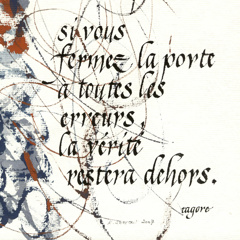 si vous
fermez la porte
à toutes les
erreurs,
la vérité
restera dehors.
tagore